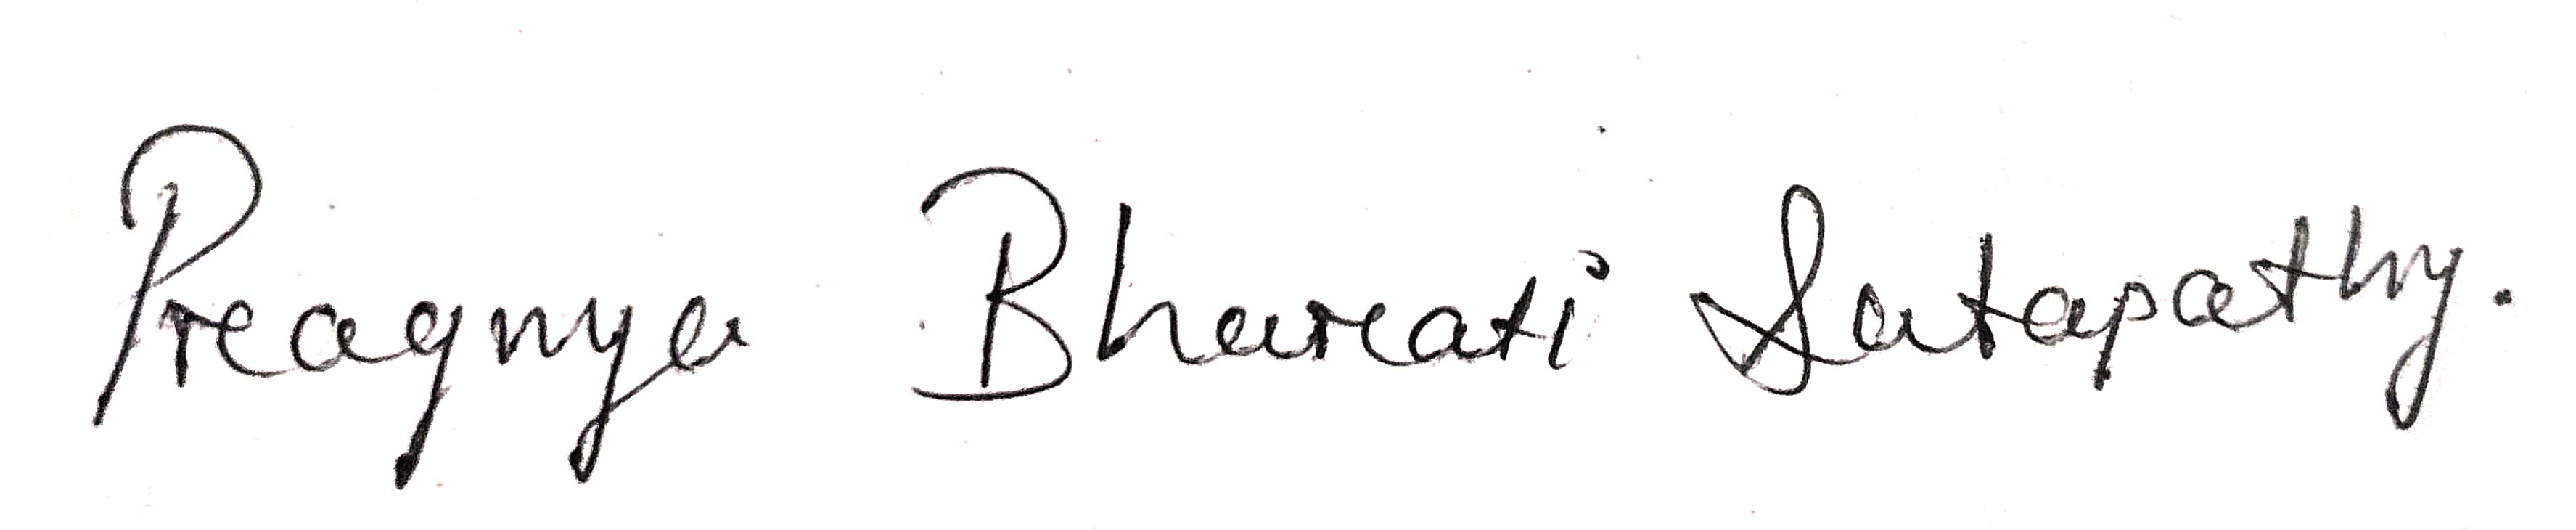 Pragnya Bharati Satapathy.